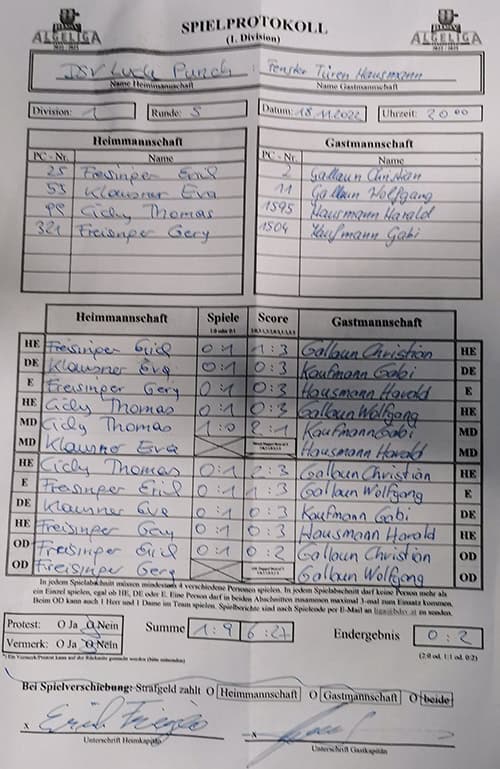 ALGELIGA SPIELPROTOKOLL ALGELIGA
(1. Division)
DSV Luck Punch : Fenster Türen Hausmann
Name Heimmannschaft Name Gastmannschaft
Division: 1 Runde: 5 Datum: 18.11.2022 Uhrzeit: 20 00
Heimmannschaft Gastmannschaft
PC - Nr. Name PC - Nr. Name
25 Freisinger Erich 2 Gallaun Christian
53 Klausner Eva 11 Gallaun Wolfgang
99 Cidy Thomas 1595 Hausmann Harald
321 Freisinger Gery 1504 Kaufmann Gabi
Heimmannschaft Spiele Score Gastmannschaft
1:0 oder 0:1
HE Freisinger Erich 0:1 1:3 Gallaun Christian HE
DE Klausner Eva 0:1 0:3 Kaufmann Gabi DE
E Freisinger Gery 0:1 0:3 Hausmann Harald E
HE Cidy Thomas 0:1 0:3 Gallaun Wolfgang HE
MD Cidy Thomas 1:0 2:1 Kaufmann Gabi MD
MD Klausner Eva Hausmann Harald MD
HE Cidy Thomas 0:1 2:3 Gallaun Christian HE
E Freisinger Erich 0:1 1:3 Gallaun Wolfgang E
DE Klausner Eva 0:1 0:3 Kaufmann Gabi DE
HE Freisinger Gery 0:1 0:3 Hausmann Harald HE
OD Freisinger Erich 0:1 0:2 Gallaun Christian OD
OD Freisinger Gery Gallaun Wolfgang OD
In jedem Spielabschnitt müssen mindestens 4 verschiedene Personen spielen. In jedem Spielabschnitt darf keine Person mehr als
ein Einzel spielen, egal ob HE, DE oder E. Eine Person darf in beiden Abschnitten zusammen maximal 3-mal zum Einsatz kommen.
Beim OD kann auch 1 Herr und 1 Dame im Team spielen. Spielberichte sind nach Spielende per E-Mail an liga@bdsv.at zu senden.
Protest: O Ja O Nein Summe 1:9 6:27 Endergebnis 0:2
Vermerk: O Ja O Nein (2:0 od. 1:1 od. 0:2)
*) Ein Vermerk/Protest kann auf der Rückseite gemacht werden (bitte ankreuzen)
Bei Spielverschiebung: Strafgeld zahlt O Heimmannschaft O Gastmannschaft O beide
x x
Unterschrift Heimkapitän Unterschrift Gastkapitän